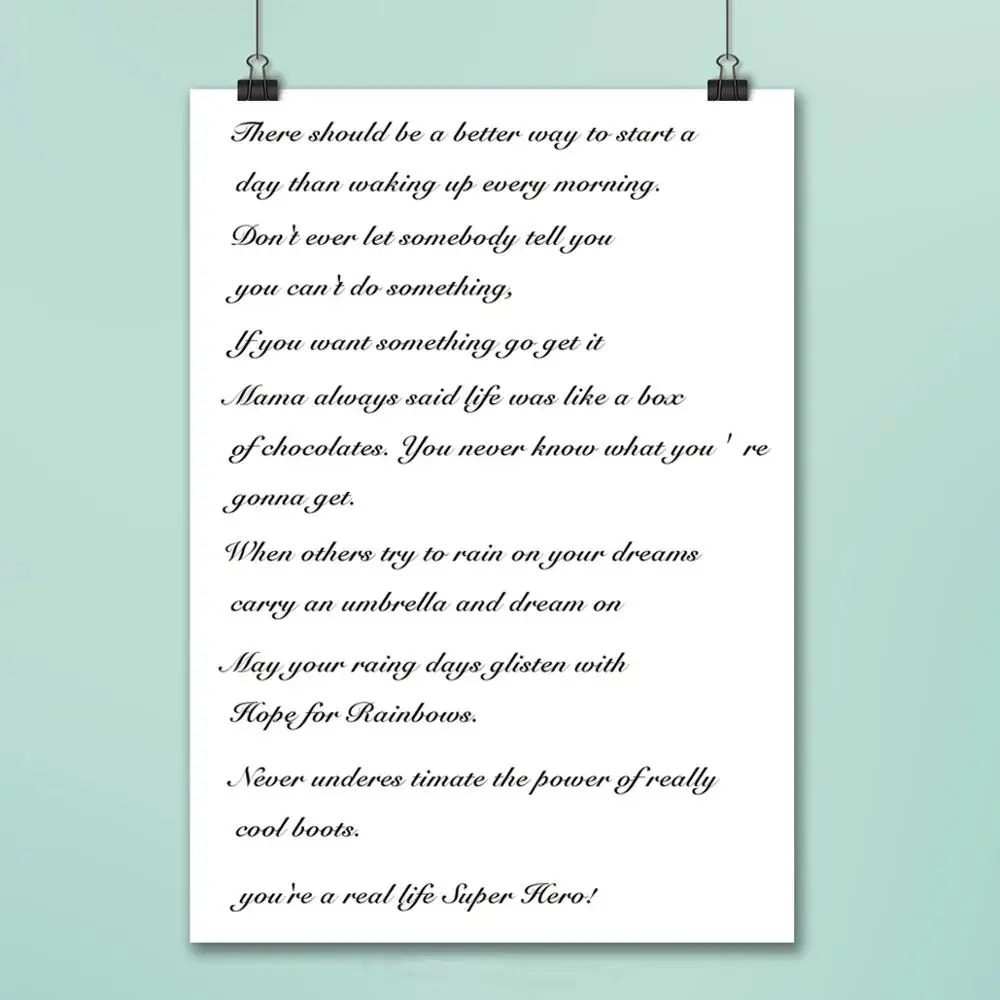 There should be a better way to start a
day than waking up every morning.
Don't ever let somebody tell you
you can't do something,
If you want something go get it
Mama always said life was like a box
of chocolates. You never know what you ' re
gonna get.
When others try to rain on your dreams
carry an umbrella and dream on
May your raing days glisten with
Hope for Rainbows.
Never underes timate the power of really
cool boots.
you're a real life Super Hero!